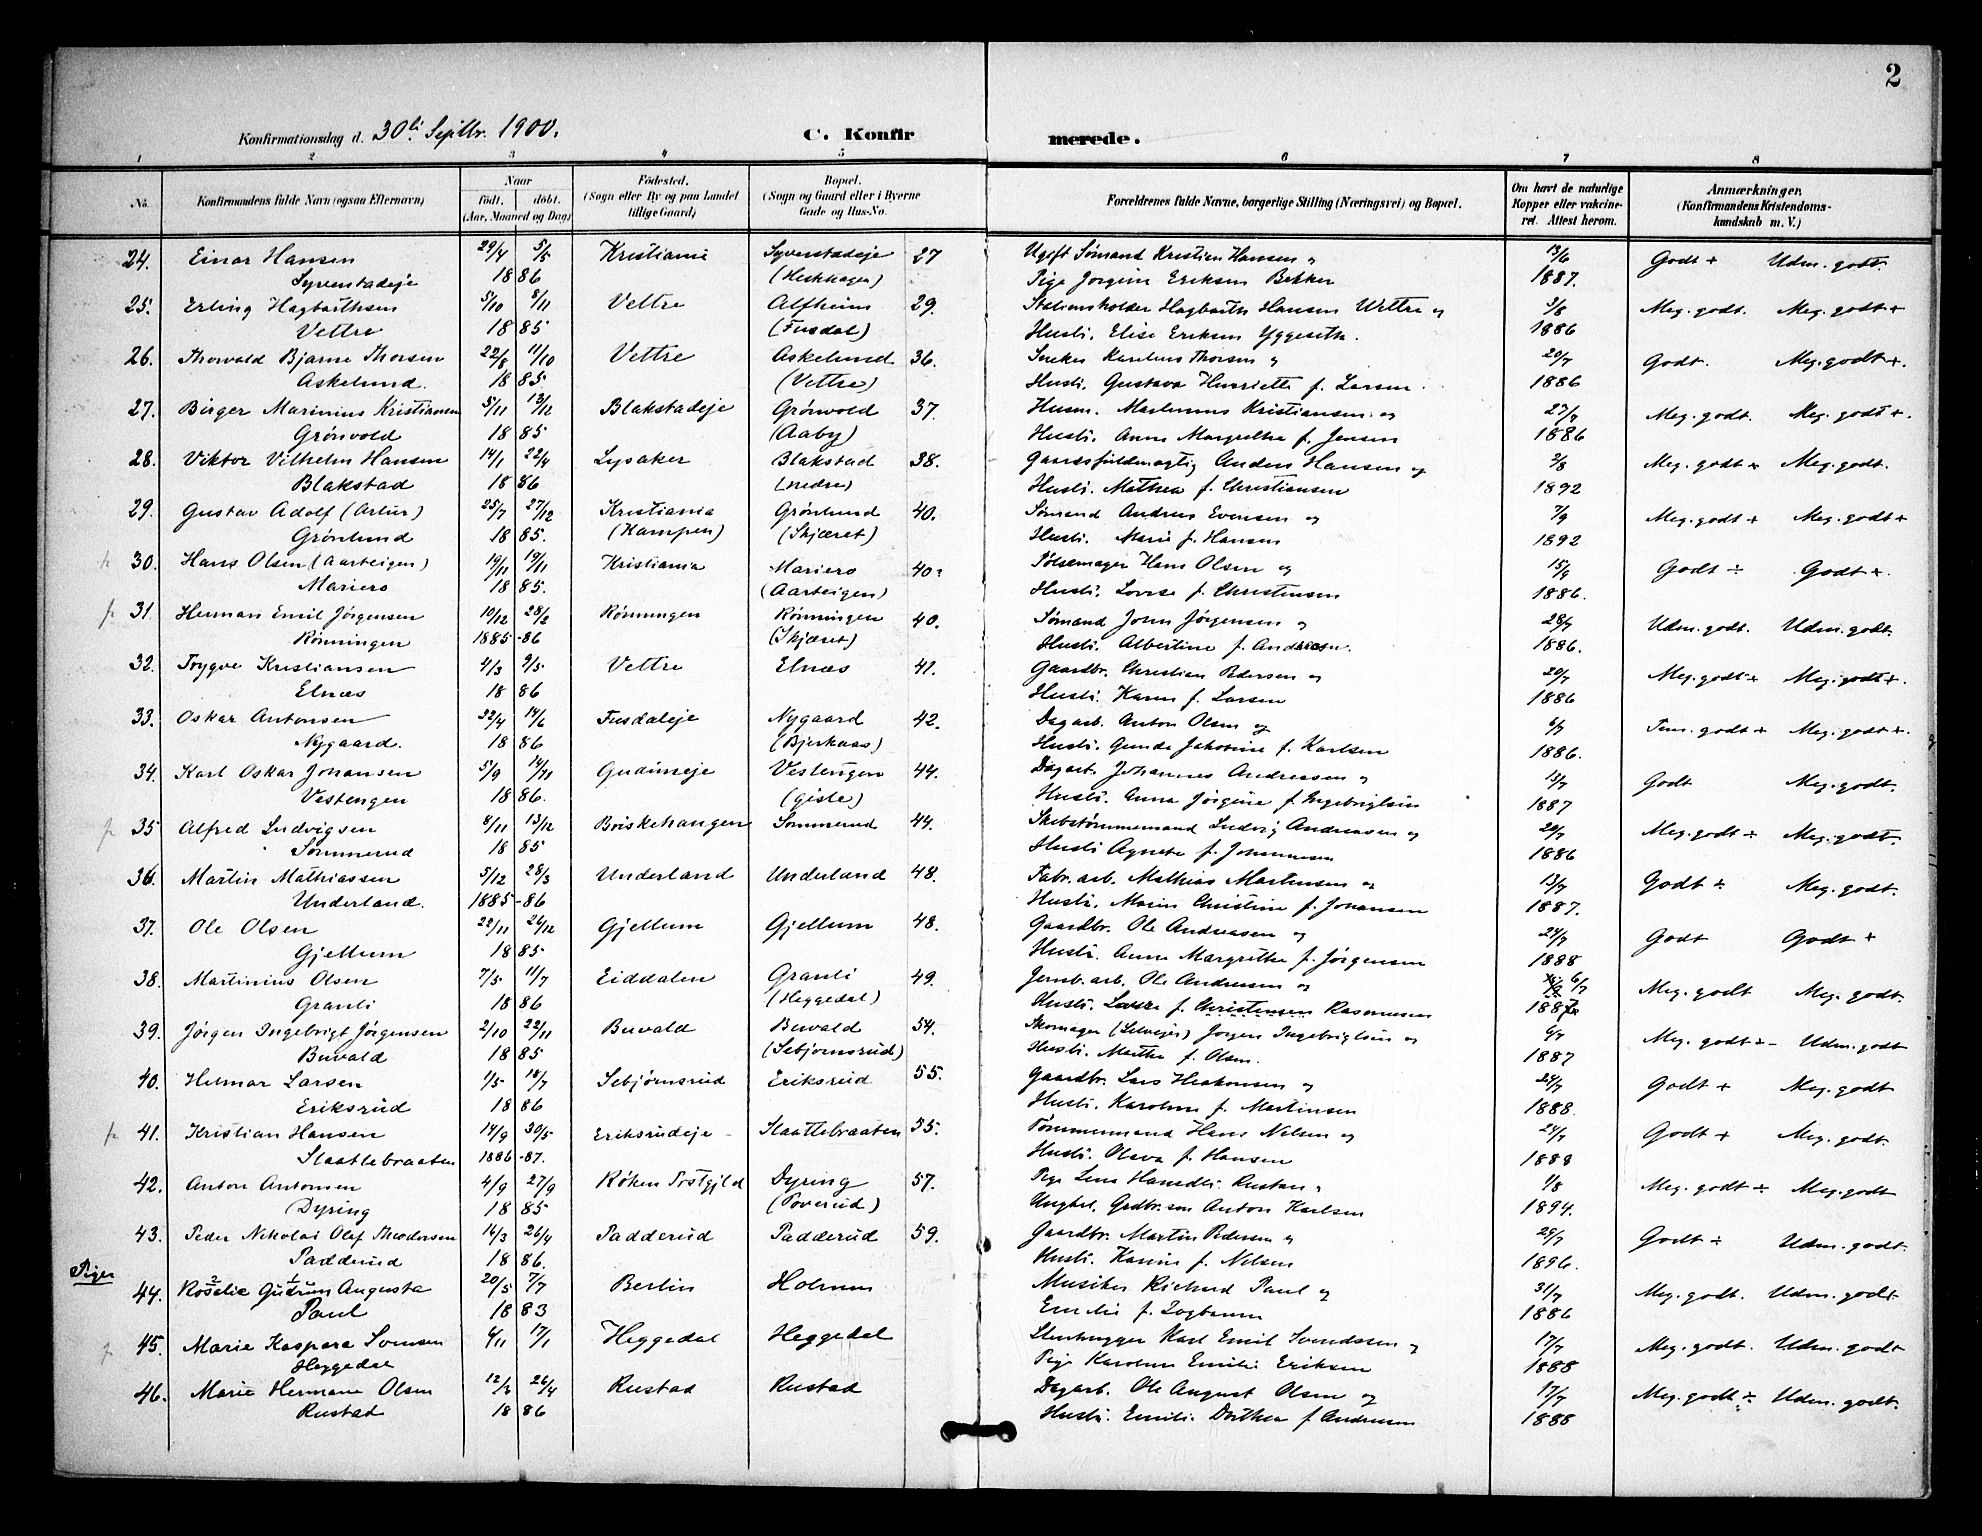 2
Konfirmationsdag d. 30te Septbr. 1900.
C. Konfirmerede.
1 2 3 4 5 6 7 8
No. Konfirmandens fulde Navn (ogsaa Efternavn) Naar født. døbt. (Aar, Maaned og Dag) Fødested. (Sogn eller By og paa Landet tillige Gaard) Bopæl. (Sogn og Gaard eller i Byerne Gade og Hus-No. Forældrenes fulde Navne, borgerlige Stilling (Næringsvei) og Bopæl. Om havt de naturlige Kopper eller vakcineret. Attest herom. Anmærkninger. (Konfirmandens Kristendomskundskab m. V.)
24. Einar Hansen 29/4 5/5 Kristiania Syverstadeje 27 Ugift Sømand Kristian Hansen og 13/6 Godt + Udm. godt.
Syverstadeje 18 86 Pige Jørgine Eriksen Bekker 1887.
25. Erling Hagbarthsen 5/10 8/11 Vettre Alfheim 29. Stationsholder Hagbarth Hansen Wettre og 3/8 Meg. godt. Meg. godt +
Vettre 18 85 (Fusdal) Hustr. Elise Eriksen Yggeseth. 1886
26. Thorvald Bjarne Thorsen 22/8 11/10 Vettre Askelund 36. Snekker Karelius Thorsen og 20/7 Godt. Meg. godt +.
Askelund. 18 85 (Vettre) Hustr. Gustava Henriette f. Larsen. 1886
27. Birger Marinius Kristiansen 5/11 13/12 Blakstadeje Grønvold 37. Husm. Martinius Kristiansen og 27/7 Meg. godt. Meg. godt +.
Grønvold 18 85 (Aaby) Hustr. Anne Margrethe f. Jensen 1886
28. Viktor Vilhelm Hansen 14/1 22/4 Lysaker Blakstad 38. Gaardsfuldmægtig Anders Hansen og 2/8 Meg. godt + Meg. godt.
Blakstad 18 86 (nedre) Hustr. Mathea f. Christiansen 1892
29. Gustav Adolf (Artur) 25/7 27/12 Kristiania Grønlund 40. Sømand Andreas Evensen og 7/9 Meg. godt + Meg. godt +
Grønlund 18 85. (Kampen) (Skjæret) Hustr. Marie f. Hansen 1892
30. Hans Olsen (Aarteigen) 19/11 19/11 Kristiania Mariero 40. Pølsemager Hans Olsen og 15/4 Godt ÷ Godt +.
Mariero 18 85. (Aarteigen) Hustr. Lovise f. Christensen 1886.
31. Herman Emil Jørgensen 10/12 28/2 Rønningen Rønningen 40. Sømand John Jørgensen og 28/7 Udm. godt. Udm. godt.
Rønningen 1885-86 (Skjæret) Hustr. Albertine f. Andersen. 1886.
32. Trygve Kristiansen 4/3 9/5 Vettre Elnæs 41. Gaardbr. Christian Pedersen og 20/7 Meg. godt + Meg. godt +.
Elnæs 18 86 Hustr. Karen f. Larsen 1886
33. Oskar Antonsen 22/4 14/6 Fusdaleje Nygaard 42. Dagarb. Anton Olsen og 6/7 Tem. godt + Meg. godt +.
Nygaard. 18 86 (Bjerkaas) Hustr. Gunda Jakobine f. Karlsen 1886.
34. Karl Oskar Johansen 5/9 14/11 Gudimeje Vestengen 44. Dagarb. Johannes Andreassen og 13/7 Godt Meg. godt.
Vestengen 18 86. (Giste) Hustr. Anna Jørgine f. Ingebrigtsen 1887
35 Alfred Ludvigsen 8/11 13/12 Boiskehangen Sommerud 44. Skibstømmermand Ludvig Andreassen og 20/7 Meg. godt + Meg. godt.
Sommerud 18 85 Hustr. Agnete f. Johannessen 1886
36. Martin Mathiassen 5/12 28/3 Underland Underland 48. Fabr. arb. Mathias Martinsen og 13/7 Godt ÷ Meg. godt.
Underland. 1885-86 Hustr. Maren Christine f. Johansen 1887.
37. Ole Olsen 22/11 24/12 Gjellum Gjellum 48. Gaardbr. Ole Andreasen og 24/7 Godt Godt +
Gjellum 18 85 Hustr. Anne Margrethe f. Jørgensen 1888
38. Martinius Olsen 7/5 11/7 Eiddalen Granli 49. Jernb. arb. Ole Andreasen og 6/7 Meg. godt Meg. godt.
Granli 18 86 (Heggedal) Hustr. Lovise f. Christensen Rasmussen 1887
39. Jørgen Ingebrigt Jørgensen 2/10 22/11 Buvald Buvald 54. Skomager (Selveier) Jørgen Ingebrigtsen og 6/7 Meg. godt ÷ Udm. godt
Buvald 18 85 (Sebjørnsrud) Hustr. Marthe f. Olsen. 1887
40. Helmar Larsen 1/5 18/7 Sebjørnsrud Eriksrud 55. Gaardbr. Lars Haakonsen og 24/7 Godt + Meg. godt
Eriksrud 18 86 Hustr. Karoline f. Martinsen 1888.
41. Kristian Hansen 14/9 30/5 Eriksrudeje Slaattebraaten 55. Tømmermand Hans Nilsen og 24/7 Godt + Meg. godt
Slaattebraaten 1886-87. Hustr. Olava f. Hansen 1888
42. Anton Antonsen 4/9 27/9 Røken Prstgjld Dyring 57. Pige Lena Hansdtr. Rustan og 1/8 Meg. godt ÷ Meg. godt
Dyring 18 85 (Poverud) Ungkarl Grdbr. søn Anton Karlsen 1894.
43. Peder Nikolai Olaf Theodorsen 14/3 26/4 Padderud Padderud 59. Gaardbr. Martin Pedersen og 29/7 Godt ÷ Udm. godt.
Padderud 18 86. Hustr. Karine f. Nilsen 1896.
Piger
44. Rosalie Gudrun Augusta 20/5 7/7 Berlin Holmen Musiker Richard Paul og 31/7 Meg. godt. Udm. godt
Paul 18 83 Emilie f. 1886
45. Marie Kaspara Svensen 4/11 17/1 Heggedal Heggedal Stenhugger Karl Emil Svendssen og 17/7 Meg. godt. Udm. godt
Heggedal Pige Karoline Emilie Eriksen 1888
46. Marie Hermane Olsen 12/2 26/4 Rustad Rustad Dagarb. Ole August Olsen og 17/7 Meg. godt ÷ Udm. godt.
Rustad 18 86 Hustr. Emilie Dorthea f. Andersen 1888